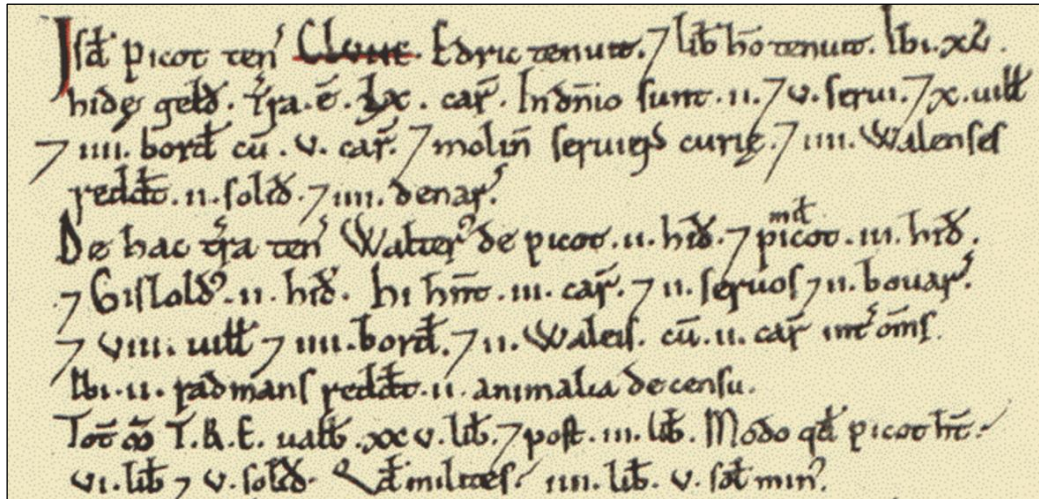 Isđ Picot teñ Clune. Edric tenuit. 7 lib̄ hō tenuit. Ibi. xv.
hidę gelđ. Tr̄a. ē. Lx. car̄. In dn̄io sunt. ii. 7 v. serui. 7 x. uilł
7 iiii. borđ cū. v. car̄. 7 moliñ seruieñs curię. 7 iiii. Walenses
redđt. ii. soliđ. 7 iiii. denar̄.
De hac tr̄a teñ Walter de picot. ii. hiđ. 7 picot mił. iii. hiđ.
7 Gislolđ. ii. hiđ. Hi hn̄t. iii. car̄. 7 ii. seruos 7 ii. bouar̄.
7 viii. uilł 7 iiii. borđ. 7 ii. Waleis. cū. ii. car̄ int̄ om̄s.
Ibi. ii. radmans redđt. ii. animalia de censu.
Tot̄ m̄ T.R.E. ualb̄. xxv. lib̄. 7 post. iii. lib̄. Modo qđ picot hт̄.
vi. lib̄ 7 v. soliđ. Qđ milites. iiii. lib̄. v. soł min.